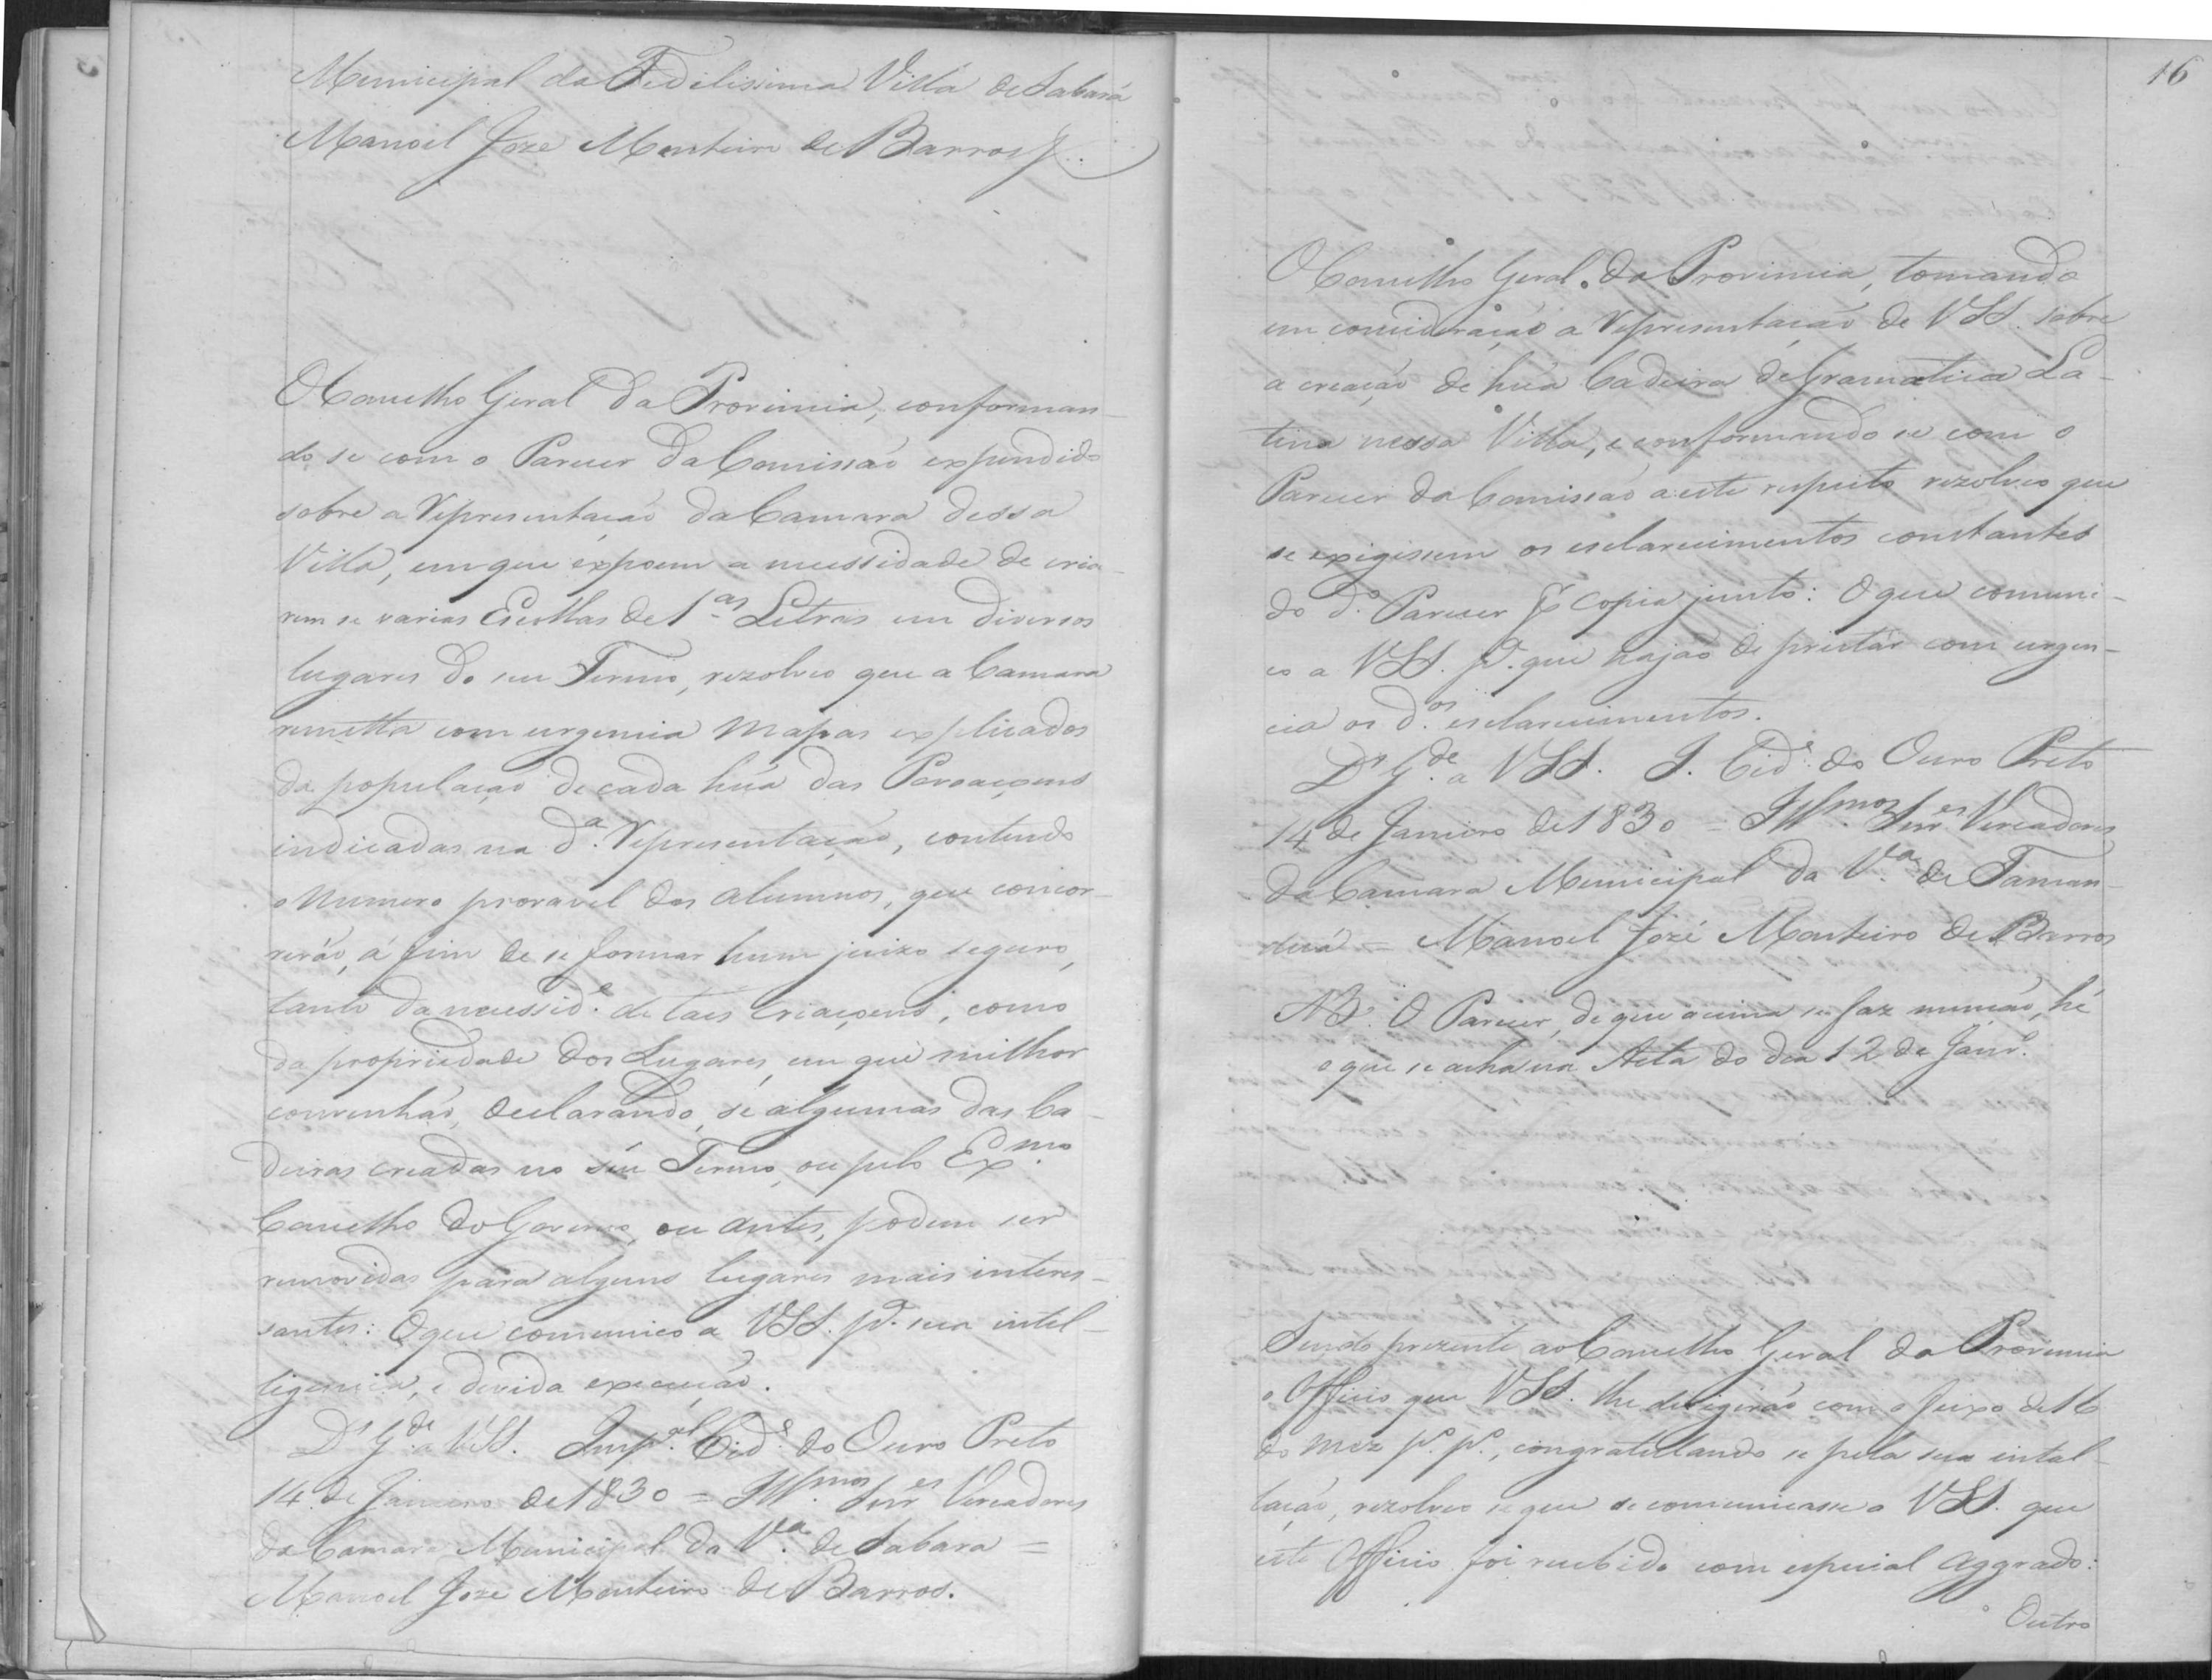 Municipal da Fidelissima Villa de Sabará
Manoel Joze Monteiro de Barros
O Conselho Geral da Provincia, conforman-
do se com o Parecer da Comissaõ expendido
sobre a Representaçaõ da Camara dessa
Villa, em que expoem a necessidade de cria-
rem se varias Escollas de 1.as Letras em diversos
lugares do seu Termo, rezolveo que a Camara
remetta com urgencia Mapas explicados
da populaçaõ de cada hũa das Povoaçoens
indicadas na d.a Representaçaõ, contendo
o Numero provavel dos alumnos, que concor-
reráõ, á fim de se formar hum juizo seguro,
tanto da necessid.e de taes criaçoens, como
da propriedade dos Lugares, em que milhor
convenhaõ, declarando, se algumas das Ca-
deiras creadas no seu Termo, ou pelo Ex.mo
Conselho do Governo, ou antes, podem ser
removidas para alguns lugares mais interes-
santes: O que comunico a VSS. p.a sua intel-
ligencia, e devida execuçaõ.
D.s G.de a VSS. Imp.al Cid.e do Ouro Preto
14 de Janeiro de 1830 = Ill.mos Snr.es Vereadores
da Camara Municipal da V.a de Sabara =
Manoel Joze Monteiro de Barros.
16
O Conselho Geral da Provincia, tomando
em consideraçaõ a Representaçaõ de VSS. sobre
a creaçaõ de hũa Cadeira de Gramatica La-
tina nessa Villa, e conformando se com o
Parecer da Comissaõ a este respeito rezolveo que
se exigissem os esclarecimentos constantes
do d.o Parecer p copia junto: O que comuni-
co a VSS. p.a que hajaõ de prestar com urgen-
cia os d.os esclarecimentos.
D.s G.de a VSS. I. Cid.e do Ouro Preto
14 de Janeiro de 1830 = Ill.mos Snr.es Vereadores
da Camara Municipal da V.a de Taman-
duá = Manoel Jozé Monteiro de Barros
NB. O Parecer, de que acima se faz mençaõ, hé
o que se acha na Acta do dia 12 de Janr.o
Sendo prezente ao Conselho Geral da Provincia
o Officio que VSS. lhe deregiraõ com o feixo de 16
do mez p.o p.o, congratulando se pela sua instal-
laçaõ, rezolveo se que se comunicasse a VSS. que
este Officio foi recebido com especial aggrado:
Outro